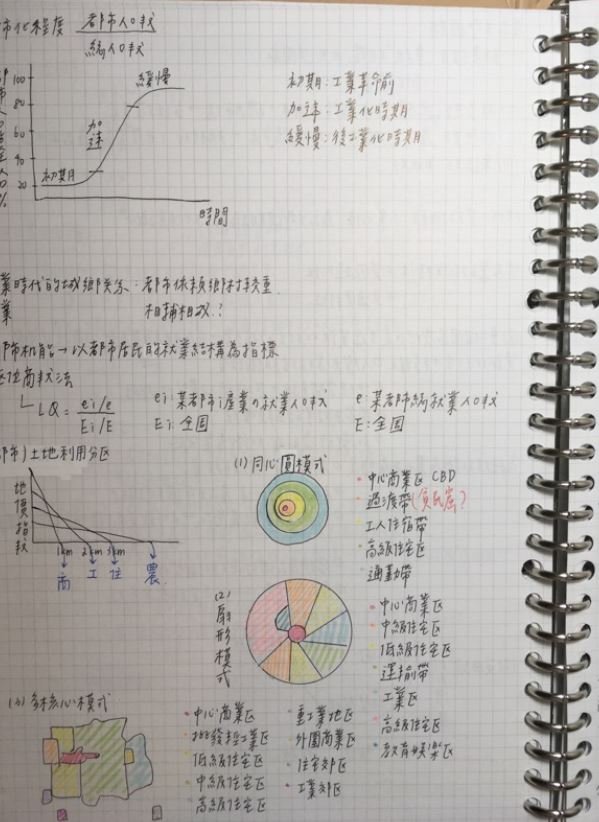 市化程度 都市人口数
總人口数
100
80
60
40
20
緩慢
加速
初期
時間
初期:工業革命前
加速:工業化時期
緩慢:後工業化時期
業時代的城鄉关系:都市依賴鄉村較重
業 相輔相成?
都市机能→以都市居民的就業結構為指標
区位商数法
LQ = ei/e
Ei/E
ei:某都市i產業の就業人口数
Ei:全国
e:某都市總就業人口数
E:全国
都市)土地利用分区
地價指数
1km 2km 3km
商 工 住 農
(1) 同心圓模式
中心商業区 CBD
過渡帶(貧民窟?
工人住宿帶
高級住宅区
通勤帶
(2) 扇形模式
中心商業区
中級住宅区
低級住宅区
運輸帶
工業区
高級住宅区
教育娛樂区
(3) 多核心模式
中心商業区
批發輕工業区
低級住宅区
中級住宅区
高級住宅区
重工業地区
外圍商業区
住宅郊区
工業郊区